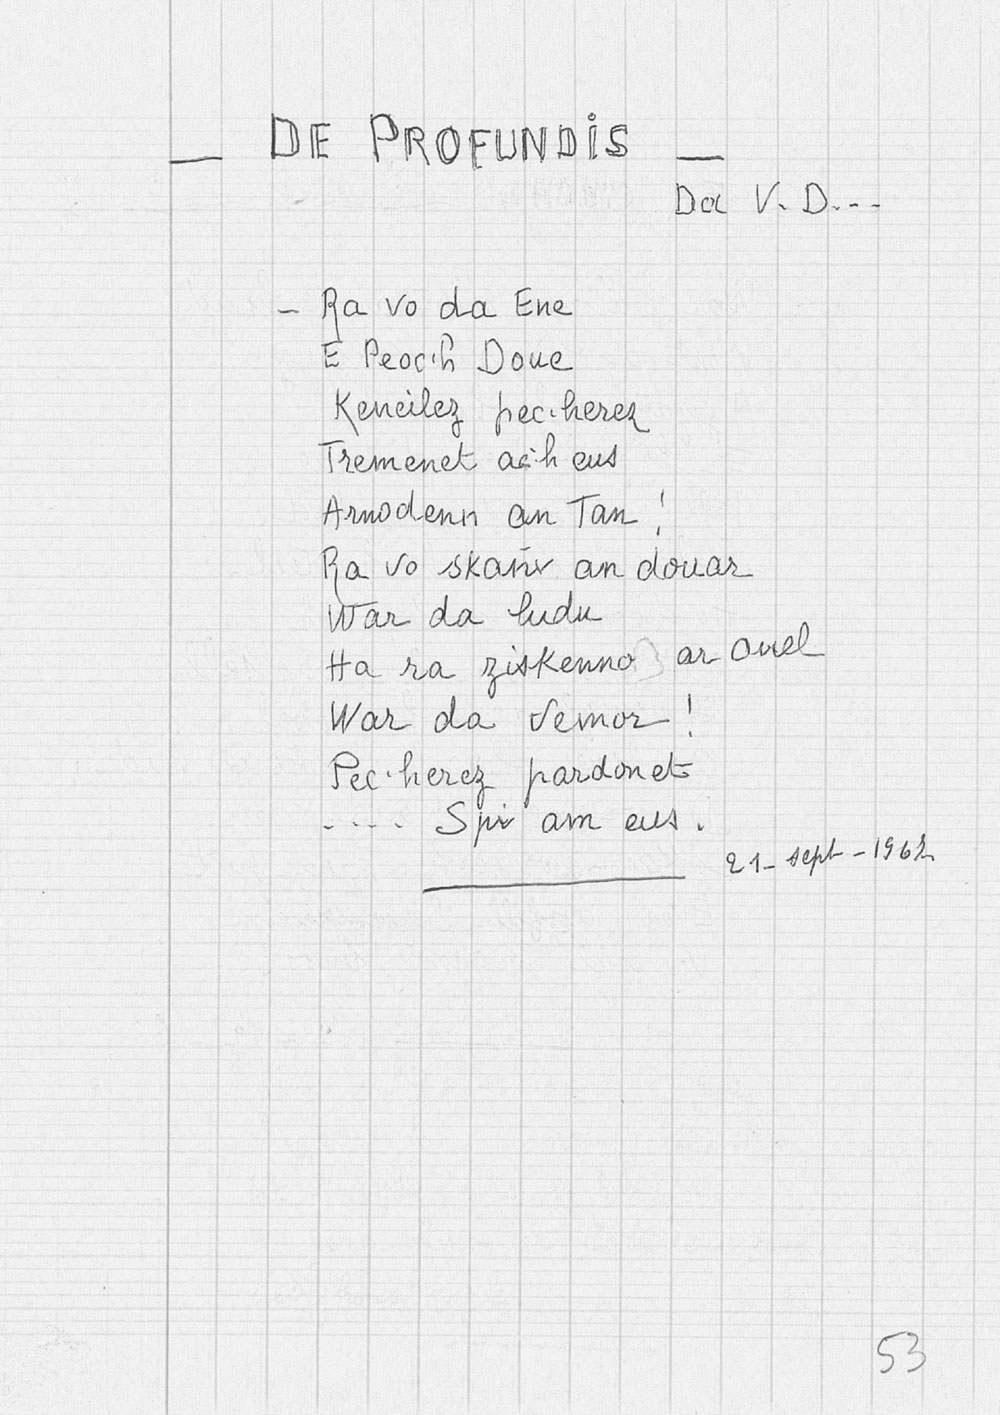 — DE PROFUNDIS —
Da V. D...
– Ra vo da Ene
E Peoc'h Doue
Keneilez pec'herez
Tremenet ac'h eus
Arnodenn an Tan !
Ra vo skañv an douar
War da ludu
Ha ra ziskenno ar Ouel
War da Vemor !
Pec'herez pardonet
.... Spi am eus.
21- sept - 1962
53